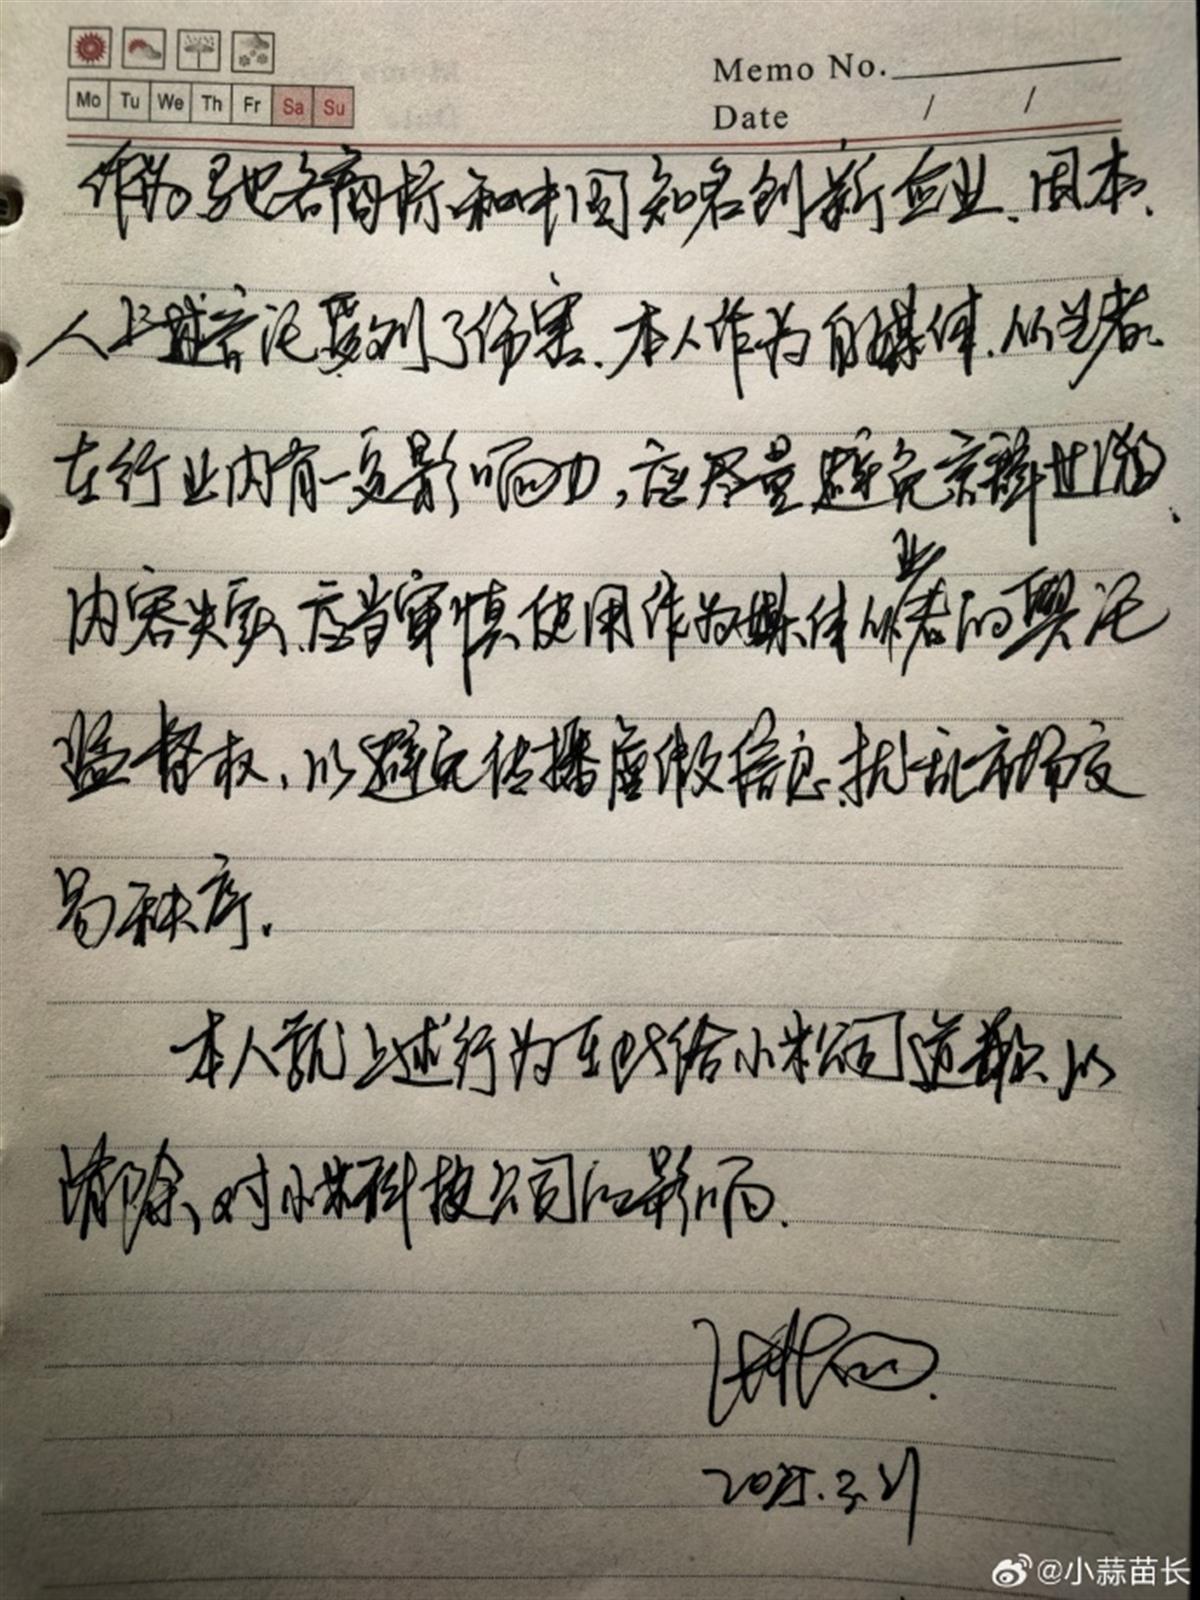 Mo Tu We Th Fr Sa Su
Memo No.
Date / /
作为驰名商标和中国知名创新企业、因本
人上述言论受到了伤害、本人作为自媒体、从业者、
在行业内有一定影响力，应尽量避免
内容失实、应当审慎使用作为媒体从业者的舆论
监督权、以避免传播虚假信息、扰乱市场交
易秩序.
本人就上述行为在此给小米公司道歉、以
消除、对小米科技公司的影响.
2025.3.21
@小蒜苗长